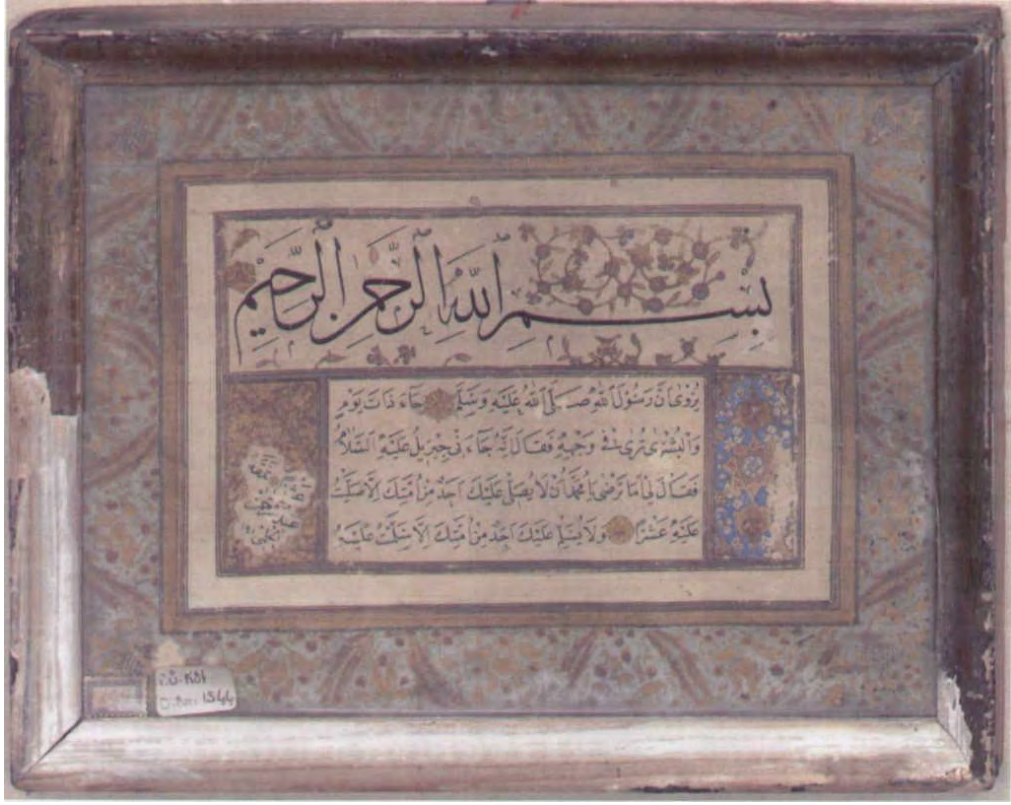 بِسْمِ اللَّهِ الرَّحْمَنِ الرَّحِيمِ
يُرْوَى أَنَّ رَسُولَ اللَّهِ صَلَّى اللَّهُ عَلَيْهِ وَسَلَّمَ جَاءَ ذَاتَ يَوْمٍ
وَالْبُشْرَى تُرَى فِي وَجْهِهِ فَقَالَ إِنَّهُ جَاءَنِي جِبْرِيلُ عَلَيْهِ السَّلَامُ
فَقَالَ لِي أَمَا تَرْضَى يَا مُحَمَّدُ أَنْ لَا يُصَلِّيَ عَلَيْكَ أَحَدٌ مِنْ أُمَّتِكَ إِلَّا صَلَّيْتُ
عَلَيْهِ عَشْرًا وَلَا يُسَلِّمُ عَلَيْكَ أَحَدٌ مِنْ أُمَّتِكَ إِلَّا سَلَّمْتُ عَلَيْهِ